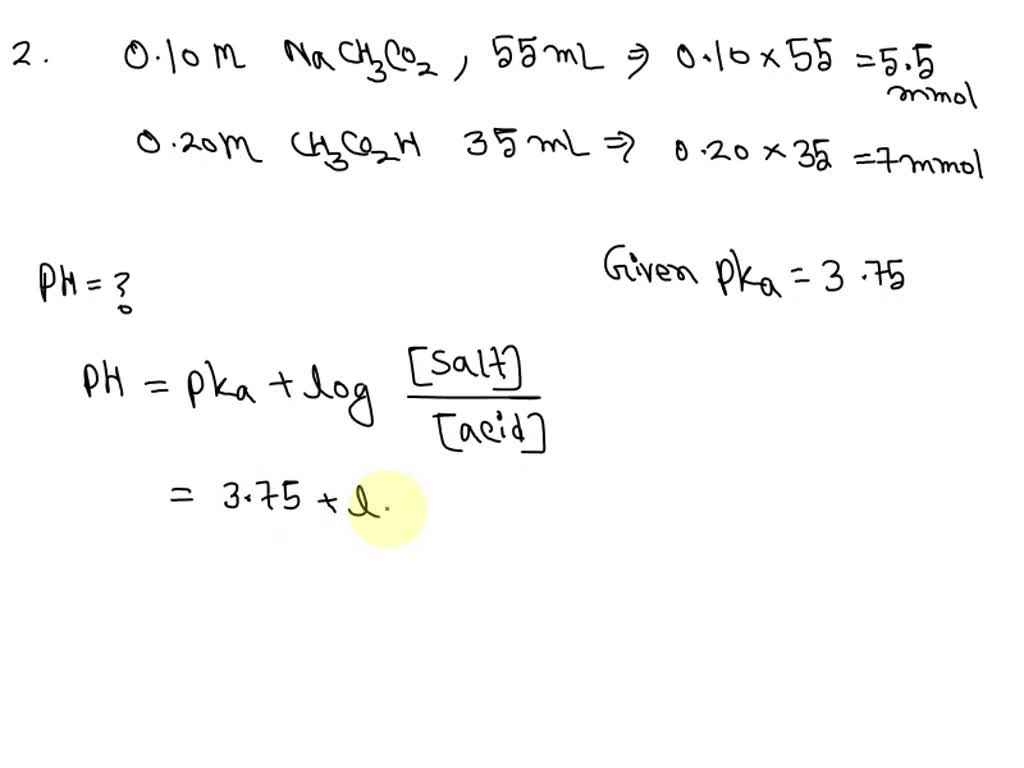 2. 0.10 M NaCH3CO2, 55 mL ⇒ 0.10 × 55 = 5.5 mmol
0.20 M CH3CO2H 35 mL ⇒ 0.20 × 35 = 7 mmol
PH = ? Given Pka = 3.75
PH = Pka + log [Salt] / [acid]
= 3.75 + l.